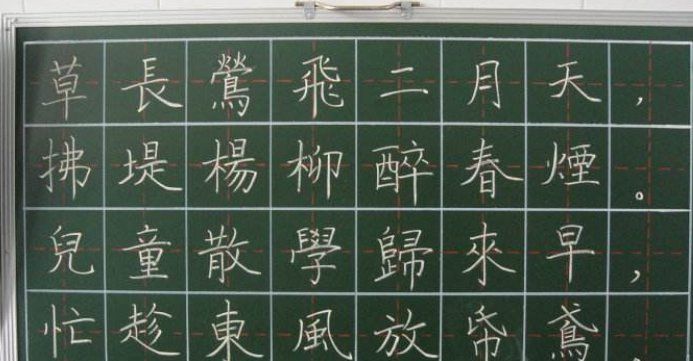 草長鶯飛二月天，
拂堤楊柳醉春煙。
兒童散學歸來早，
忙趁東風放帋鳶